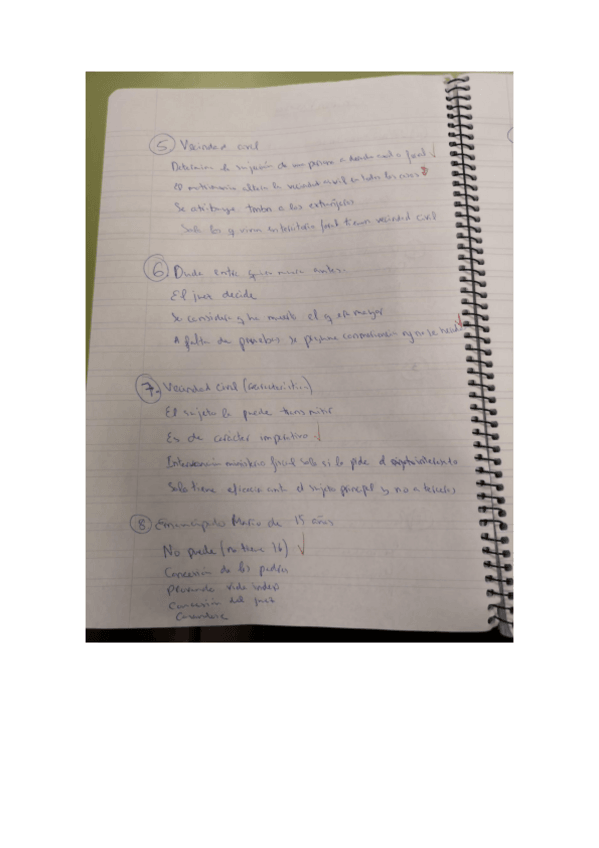 5 Vecindad civil
Determina la sujeción de una persona a derecho civil o foral ✓
El matrimonio altera la vecindad civil en todos los casos
Se atribuye tambn a los extranjeros
Solo los q viven en territorio foral tienen vecindad civil
6 Duda entre quien murió antes.
El juez decide
Se considera q ha muerto el q es mayor
A falta de pruebas se presume conmoriencia y no se
7. Vecindad civil (característica)
El sujeto la puede transmitir
Es de carácter imperativo ✓
Intervención ministerio fiscal solo si lo pide el
Solo tiene eficacia ante el sujeto principal y no a terceros
8 Emancipado Mario de 15 años
No puede (no tiene 16) ✓
Concesión de los padres
Probando vida indep
Concesión del juez
Casandose